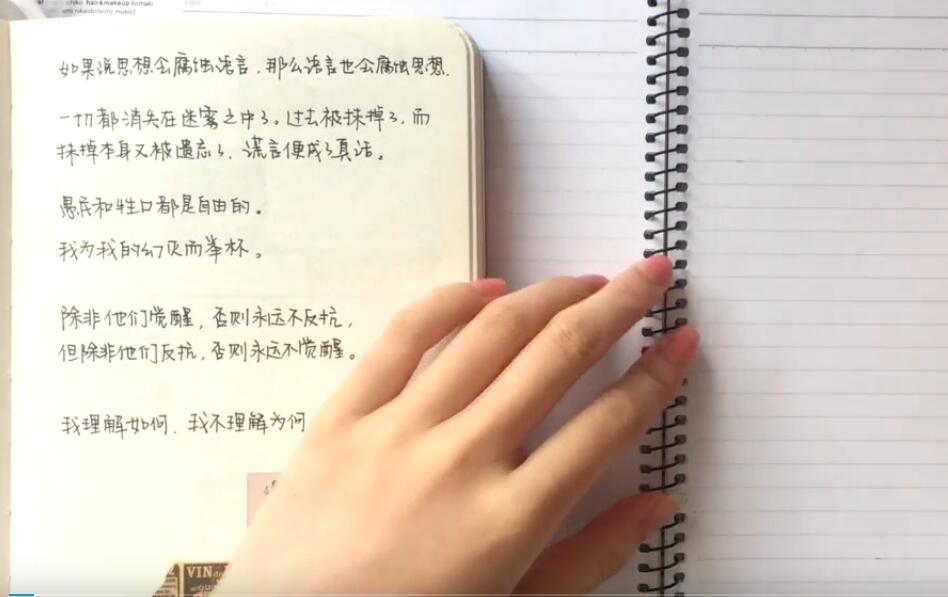 chiko hair&makeup komaki
如果说思想会腐蚀语言，那么语言也会腐蚀思想.
一切都消失在迷雾之中了。过去被抹掉了，而
抹掉本身又被遗忘了，谎言便成了真话。
愚民和牲口都是自由的。
我为我的幻灭而举杯。
除非他们觉醒，否则永远不反抗，
但除非他们反抗，否则永远不觉醒。
我理解如何．我不理解为何
VIN